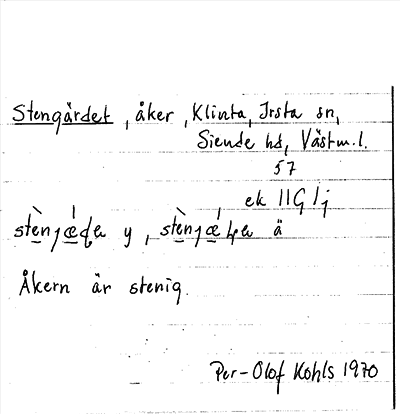 Stengärdet, åker, Klinta, Irsta sn,
Siende hd, Västm.l.
57
ek 11G 1j
y, ä
Åkern är stenig.
Per-Olof Kohls 1970